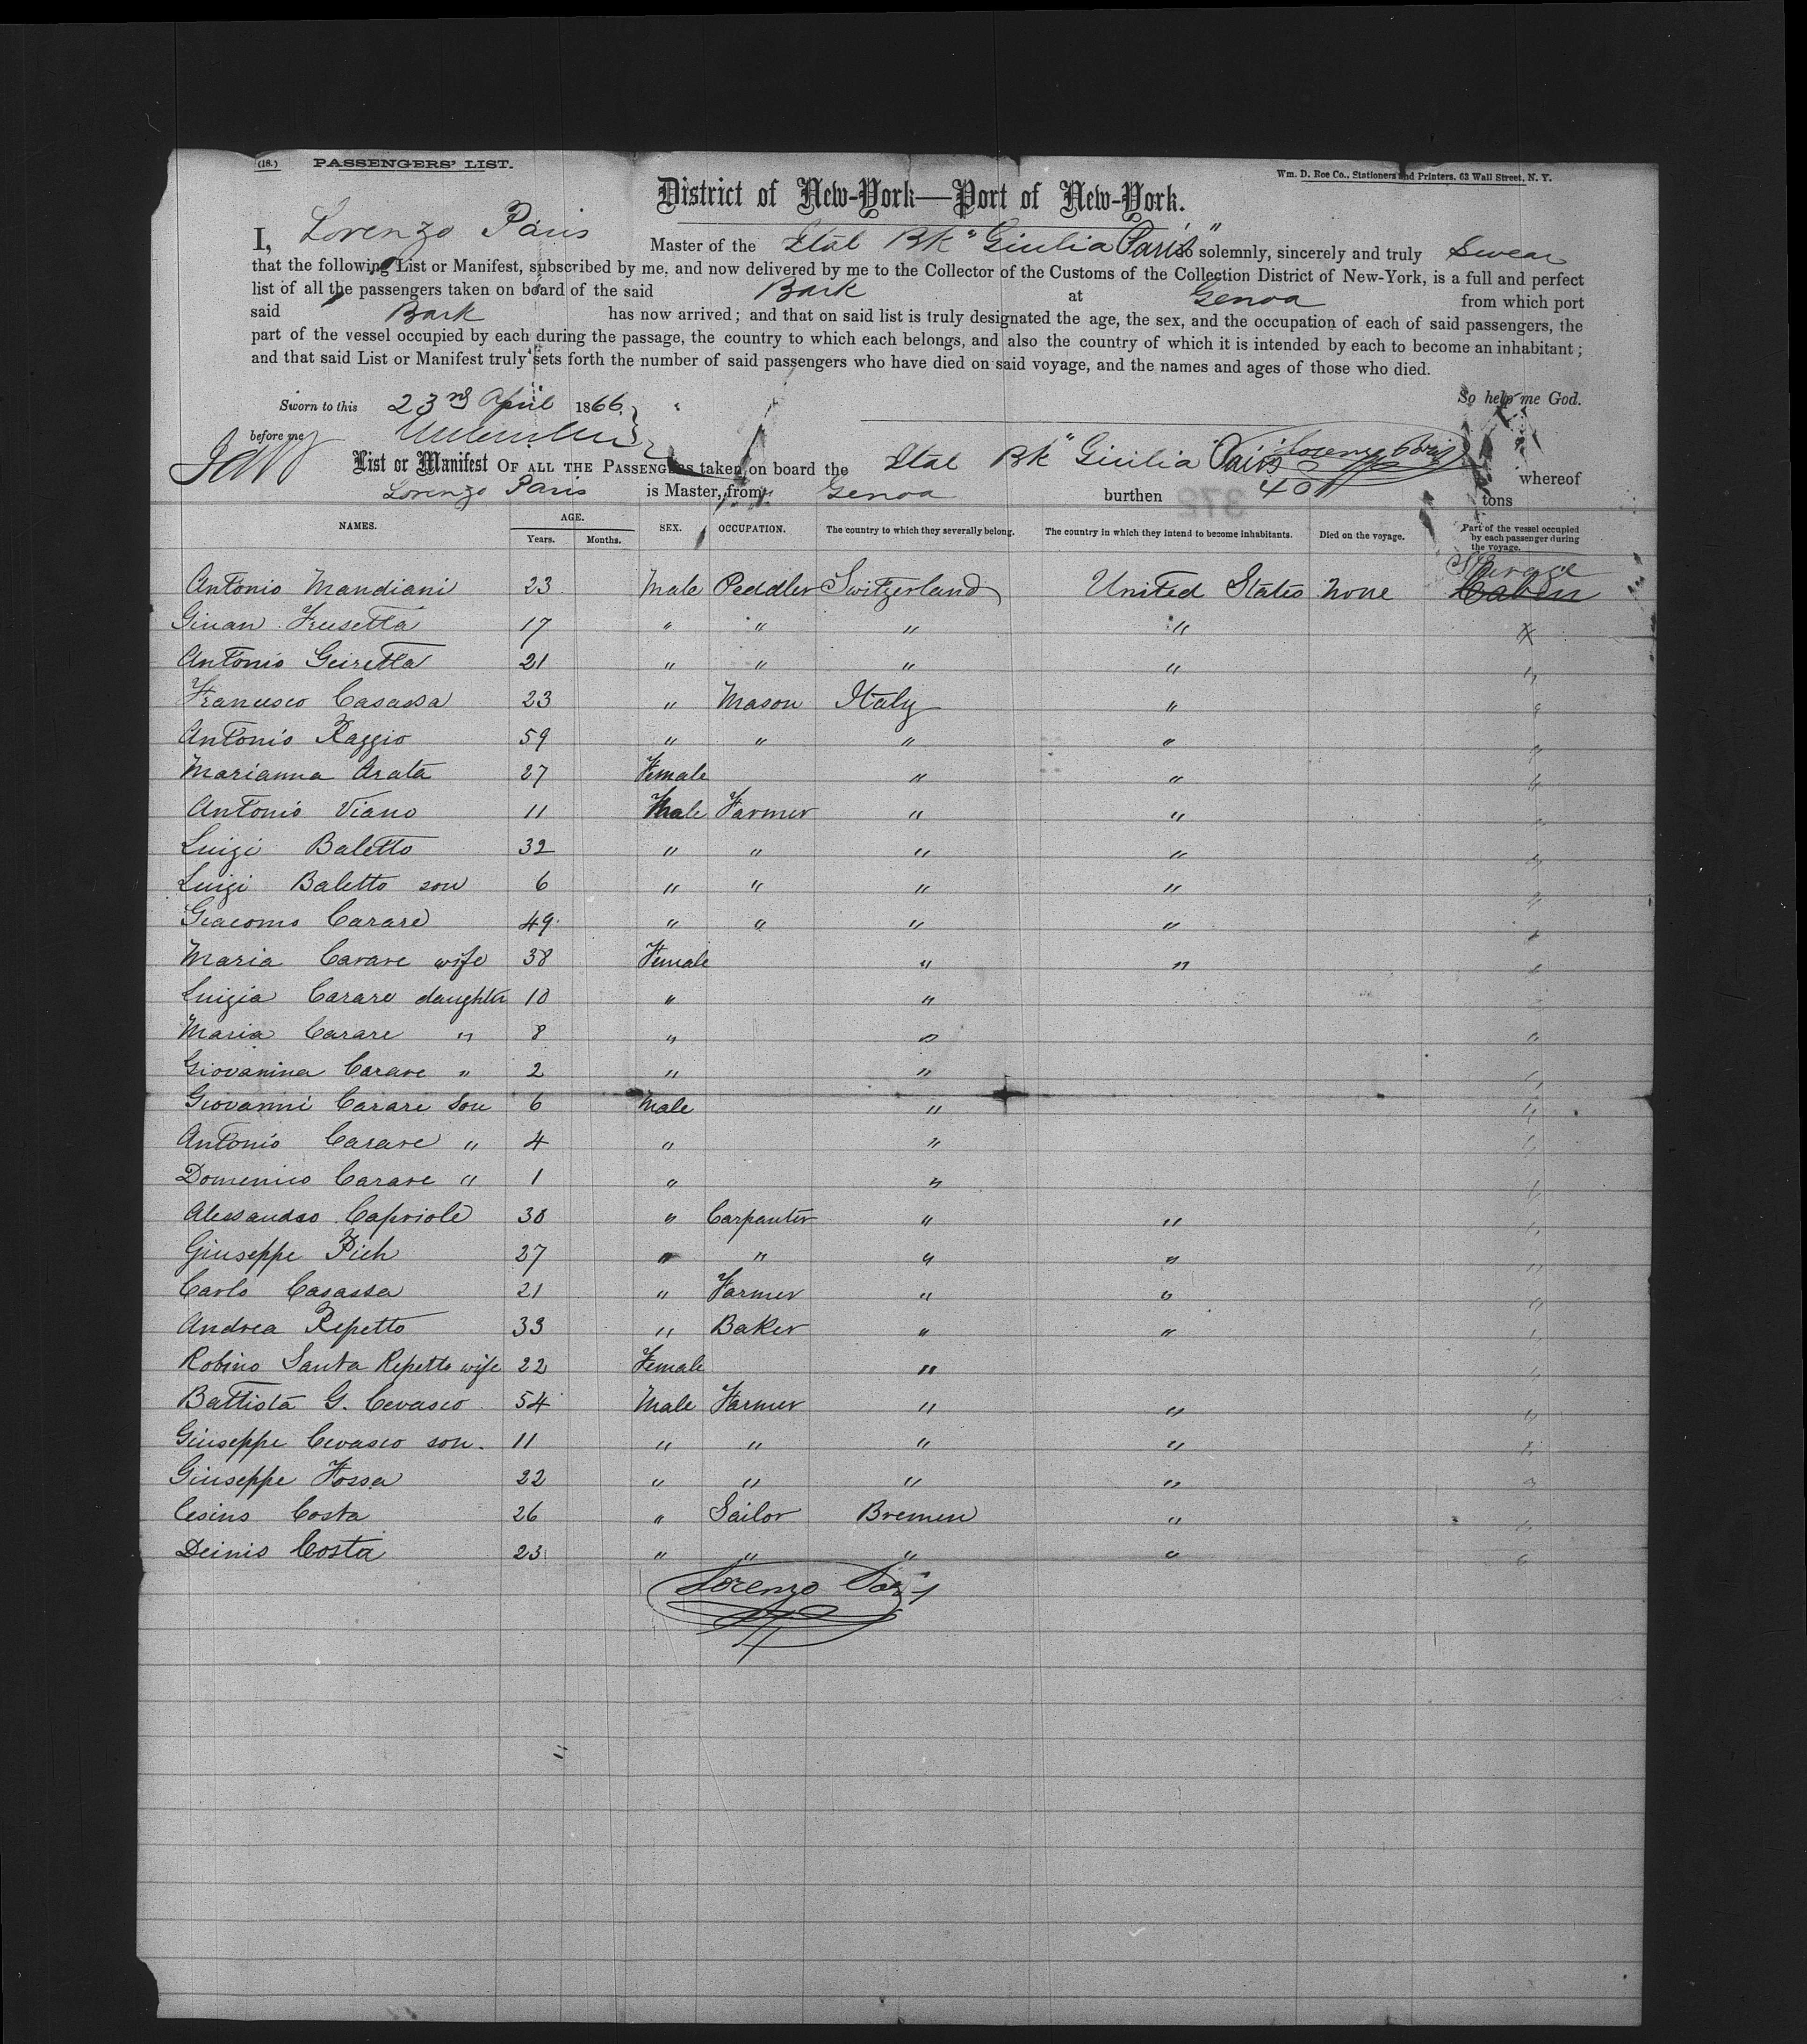 (18.) PASSENGERS' LIST.
Wm. D. Roe Co., Stationers and Printers, 63 Wall Street, N. Y.
District of New-York—Port of New-York.
I, Lorenzo Paris Master of the Ital Bk "Giulia Paris" do solemnly, sincerely and truly Swear
that the following List or Manifest, subscribed by me, and now delivered by me to the Collector of the Customs of the Collection District of New-York, is a full and perfect
list of all the passengers taken on board of the said Bark at Genoa from which port
said Bark has now arrived; and that on said list is truly designated the age, the sex, and the occupation of each of said passengers, the
part of the vessel occupied by each during the passage, the country to which each belongs, and also the country of which it is intended by each to become an inhabitant;
and that said List or Manifest truly sets forth the number of said passengers who have died on said voyage, and the names and ages of those who died.
So help me God.
Sworn to this 23rd April 1866.
before me
List or Manifest OF ALL THE PASSENGERS taken on board the Ital Bk "Giulia Paris whereof
Lorenzo Paris is Master, from Genoa burthen 401 tons
372
NAMES. AGE. Years. Months. SEX. OCCUPATION. The country to which they severally belong. The country in which they intend to become inhabitants. Died on the voyage. Part of the vessel occupied by each passenger during the voyage.
Antonio Mandiani 23 Male Peddler Switzerland United States None Steerage Cabin
Giuan Frusetta 17 " " " "
Antonio Geiretta 21 " " " " "
Francesco Casassa 23 " Mason Italy " "
Antonio Raggio 59 " " " " "
Marianna Arata 27 Female " " "
Antonio Viano 11 Male Farmer " " "
Luigi Baletto 32 " " " " "
Luigi Baletto son 6 " " " " "
Giacomo Carare 49 " " " " "
Maria Carare wife 38 Female " " "
Luigia Carare daughter 10 " " "
Maria Carare " 8 " " "
Giovanina Carare " 2 " " "
Giovanni Carare Son 6 Male " "
Antonio Carare " 4 " " "
Domenico Carare " 1 " " "
Alessandro Capriole 30 " Carpanter " " "
Giuseppe Pich 27 " " " " "
Carlo Casassa 21 " Farmer " " "
Andrea Repetto 33 " Baker " " "
Robino Santa Repetto wife 22 Female " "
Battista G. Cevasco 54 Male Farmer " " "
Giuseppe Cevasco son. 11 " " " " "
Giuseppe Fossa 22 " " " " "
Cesino Costa 26 " Sailor Bremen " "
Deinis Costa 23 " " " " "
Lorenzo Paris